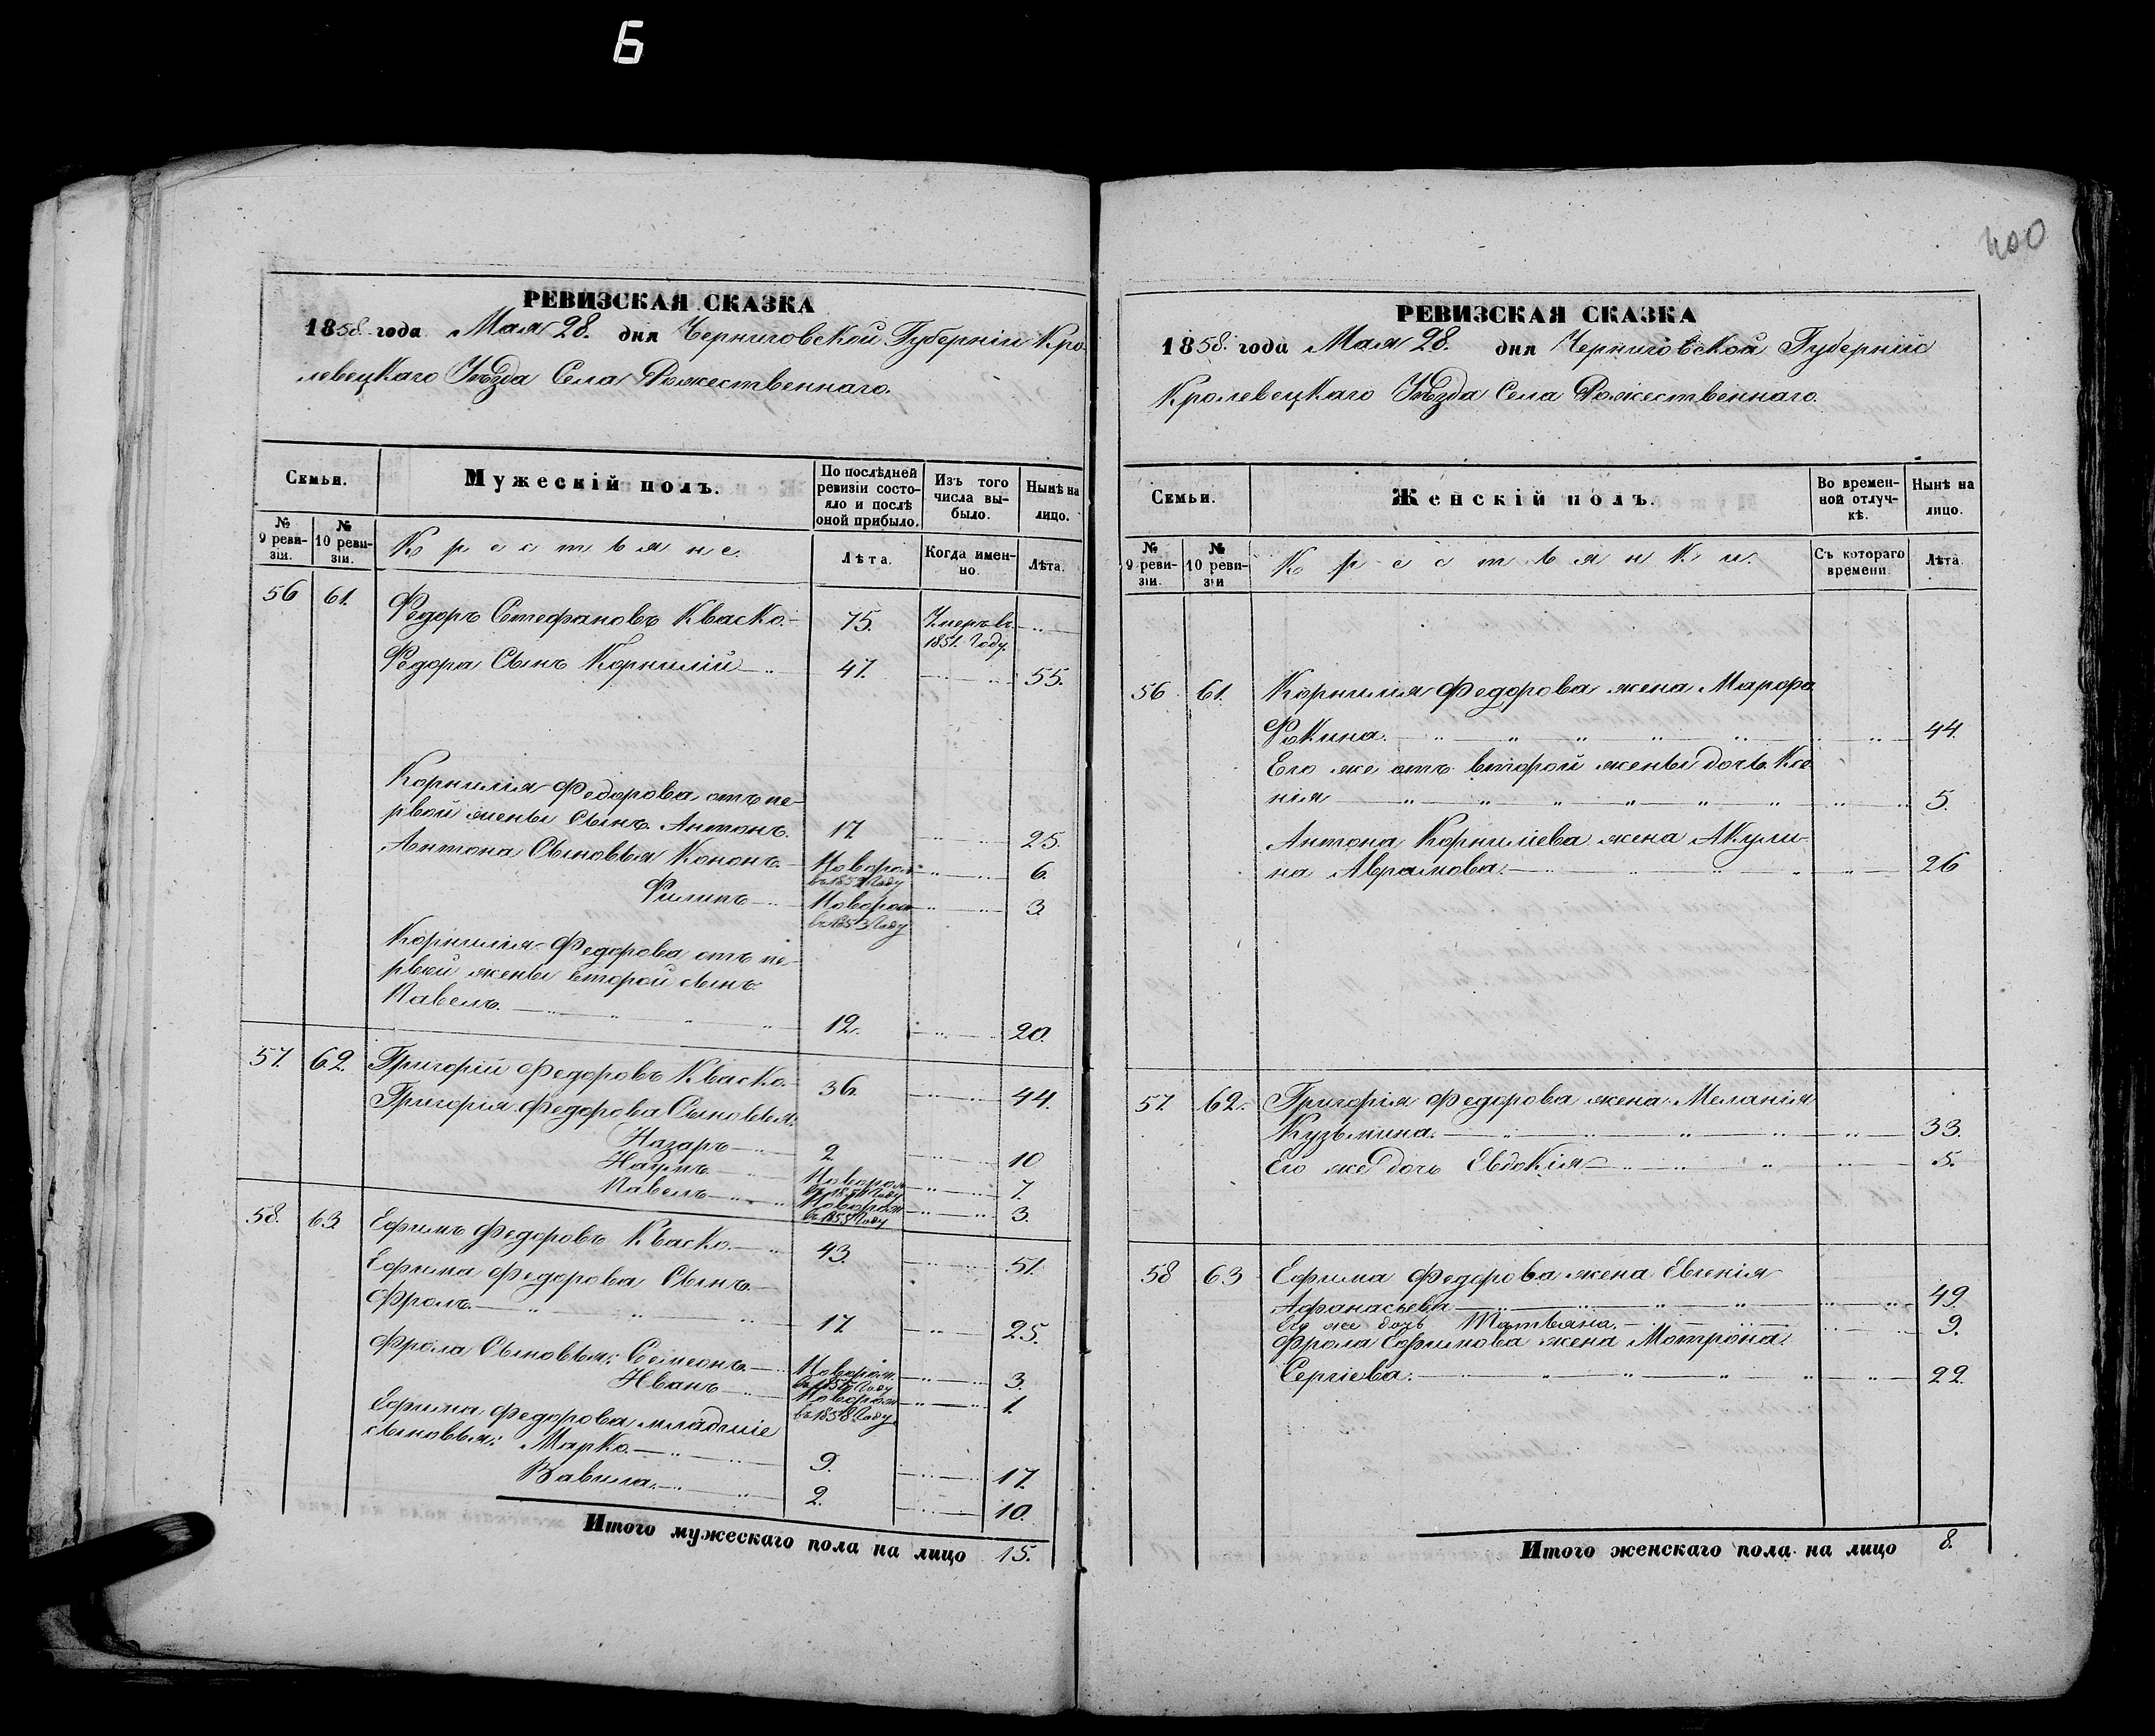 Б
РЕВИЗСКАЯ СКАЗКА
1858. года Мая 28. дня Черниговской Губерніи Кро-
левецкаго Уѣзда Села Рожественнаго.
Семьи.
Мужескій полъ.
По послѣдней ревизіи состояло и послѣ оной прибыло.
Изъ того числа выбыло.
Нынѣ на лицо.
№ 9 ревизіи.
№ 10 ревизіи.
Крестьяне.
Лѣта.
Когда именно.
Лѣта.
56 61. Федоръ Стефановъ Кваско. 75. Умеръ въ 1851. Году.
Федора Сынъ Корнилій 47. 55.
Корнилія Федорова отъ пе-
рвой жены Сынъ Антонъ. 17. 25.
Антона Сыновья Кононъ. Новорож 6.
Филипъ Новорож въ 1853 Году 3.
Корнилія Федорова отъ пе-
рвой жены второй сынъ
Павелъ. 12. 20.
57. 62. Григорій Федоровъ Кваско. 36. 44.
Григорія Федорова Сыновья:
Назаръ 2. 10
Наумъ Новорож 7.
Павелъ Новорож 3.
58. 63 Ефимъ Федоровъ Кваско. 43. 51.
Ефима Федорова Сынъ
Фролъ. 17. 25.
Фрола Сыновья: Семеонъ. Новорож. 3.
Иванъ Новорож въ 1858 Году 1.
Ефима Федорова младшіе
сыновья: Марко. 9. 17.
Вавила. 2. 10.
Итого мужескаго пола на лицо 15.
400
РЕВИЗСКАЯ СКАЗКА
1858. года Мая 28. дня Черниговской Губерніи
Кролевецкаго Уѣзда Села Рожественнаго.
Семьи.
Женскій полъ.
Во временной отлучкѣ.
Нынѣ на лицо.
№ 9 ревизіи.
№ 10 ревизіи
Крестьянки.
Съ котораго времени
Лѣта
56 61. Корнилия Федорова жена Марфа
Фокина. 44.
Его же отъ второй жены дочь Ксе
нія 5.
Антона Корнилиева жена Акули-
на Аврамова. 26
57 62. Григорія Федорова жена Меланія
Кузьмина. 33.
Его же дочь Евдокія 5.
58 63 Ефима Федорова жена Евгенія
Афанасьева 49.
Его же дочь Татьяна. 9.
Фрола Ефимова жена Мотрона
Сергіева. 22.
Итого женскаго пола на лицо 8.